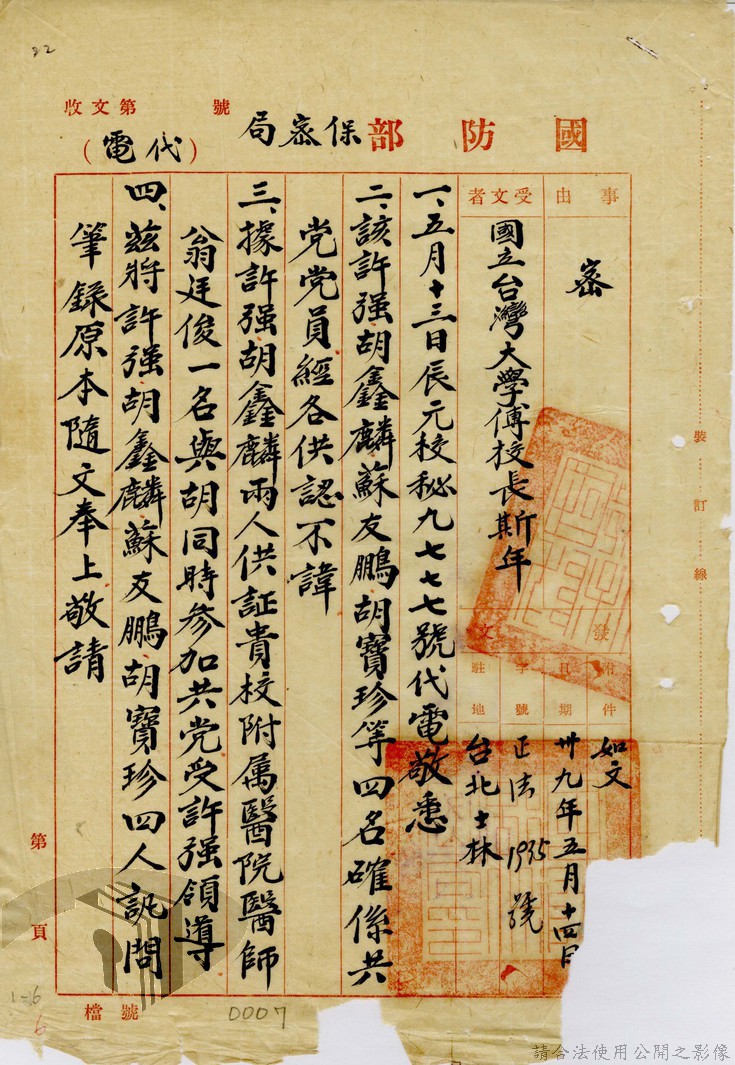 22
收文第 號
國防部保密局
(代電)
事由
密
受文者
國立台灣大學傅校長斯年
發文
附件
如文
日期
卅九年五月十四日
字號
正法 1935 號
駐地
台北士林
一、五月十三日辰元校秘九七七七號代電敬悉
二、該許强胡鑫麟蘇友鵬胡寶珍等四名確係共
党党員經各供認不諱
三、據許强胡鑫麟兩人供証貴校附属醫院醫師
翁廷俊一名與胡同時参加共党受許强領導
四、茲將許强胡鑫麟蘇友鵬胡寶珍四人訊問
筆錄原本隨文奉上敬請
裝訂線
第 頁
檔號
0007
1-6
6
請合法使用公開之影像